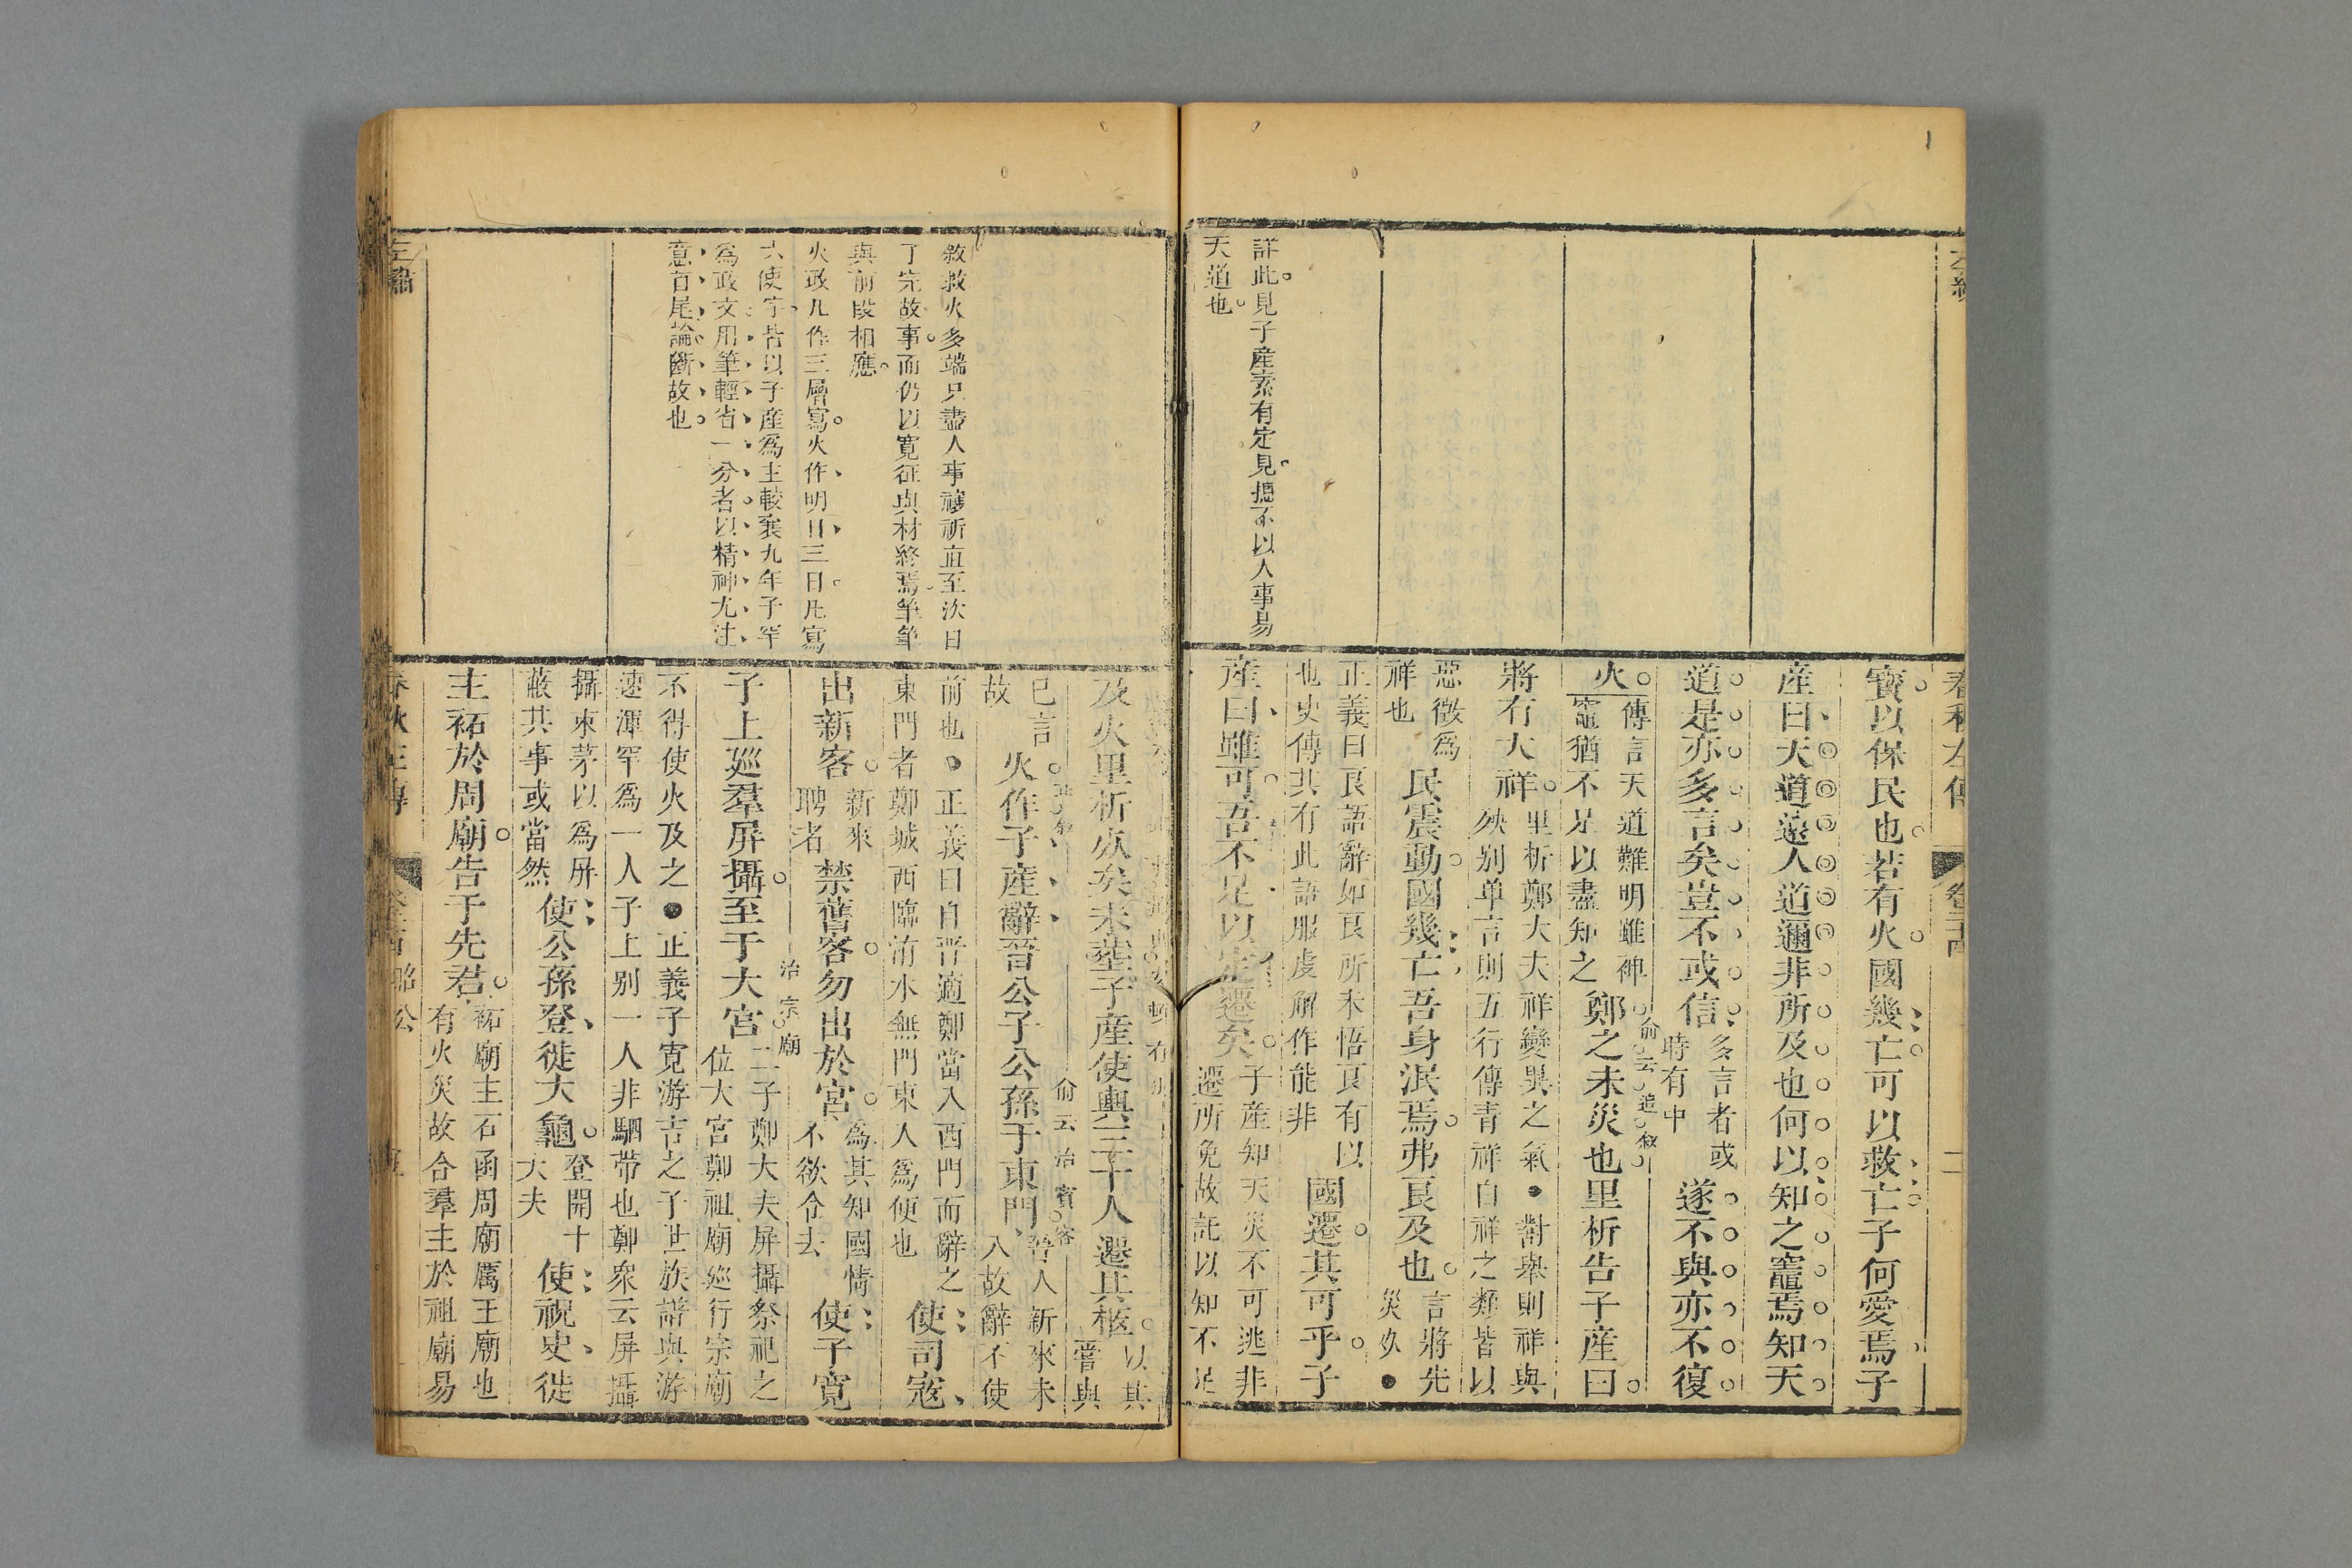 春秋左傳
二
詳此見子產素有定見摠不以人事易
天道也
寶以保民也若有火國幾亡可以救亡子何愛焉子
產曰天道遠人道邇非所及也何以知之竈焉知天
道是亦多言矣豈不或信多言者或時有中遂不與亦不復
火傳言天道難明雖裨竈猶不足以盡知之鄭之未災也里析告子產曰
俞云追敘
將有大祥里析鄭大夫祥變異之氣●對舉則祥與殃别单言則五行傳青祥白祥之類皆以
惡徵為祥也民震動國幾亡吾身泯焉弗良及也言將先災死●
正義曰良語辭如良所未悟良有以也史傳共有此語服虔解作能非國遷其可乎子
產曰雖可吾不足以定遷矣子產知天災不可逃非遷所免故託以知不足
敘救火多端只盡人事禳祈直至次日
了完故事而仍以寬征與材終焉筆筆
與前段相應
火政凡作三層寫火作明日三日凡寫
六使字皆以子產為主較襄九年子罕
為政文用筆輕省一分者以精神尤注
意首尾論斷故也
及火里析死矣未葬子產使輿三十人遷其柩以其嘗與
已言故火作子產辭晉公子公孫于東門晉人新來未入故辭不使
俞云治賓客
前也●正義曰自晉適鄭當入西門而辭之東門者鄭城西臨洧水無門東人為便也使司寇
出新客新來聘者禁舊客勿出於宮為其知國情不欲令去使子寬
子上巡羣屏攝至于大宮二子鄭大夫屏攝祭祀之位大宮鄭祖廟巡行宗廟
治宗廟
不得使火及之●正義子寬游吉之子世族譜與游速渾罕為一人子上别一人非駟帶也鄭眾云屏攝
攝束茅以為屏蔽其事或當然使公孫登徙大龜登開卜大夫使祝史徙
主祏於周廟告于先君祏廟主石函周廟厲王廟也有火災故合羣主於祖廟易
左繡